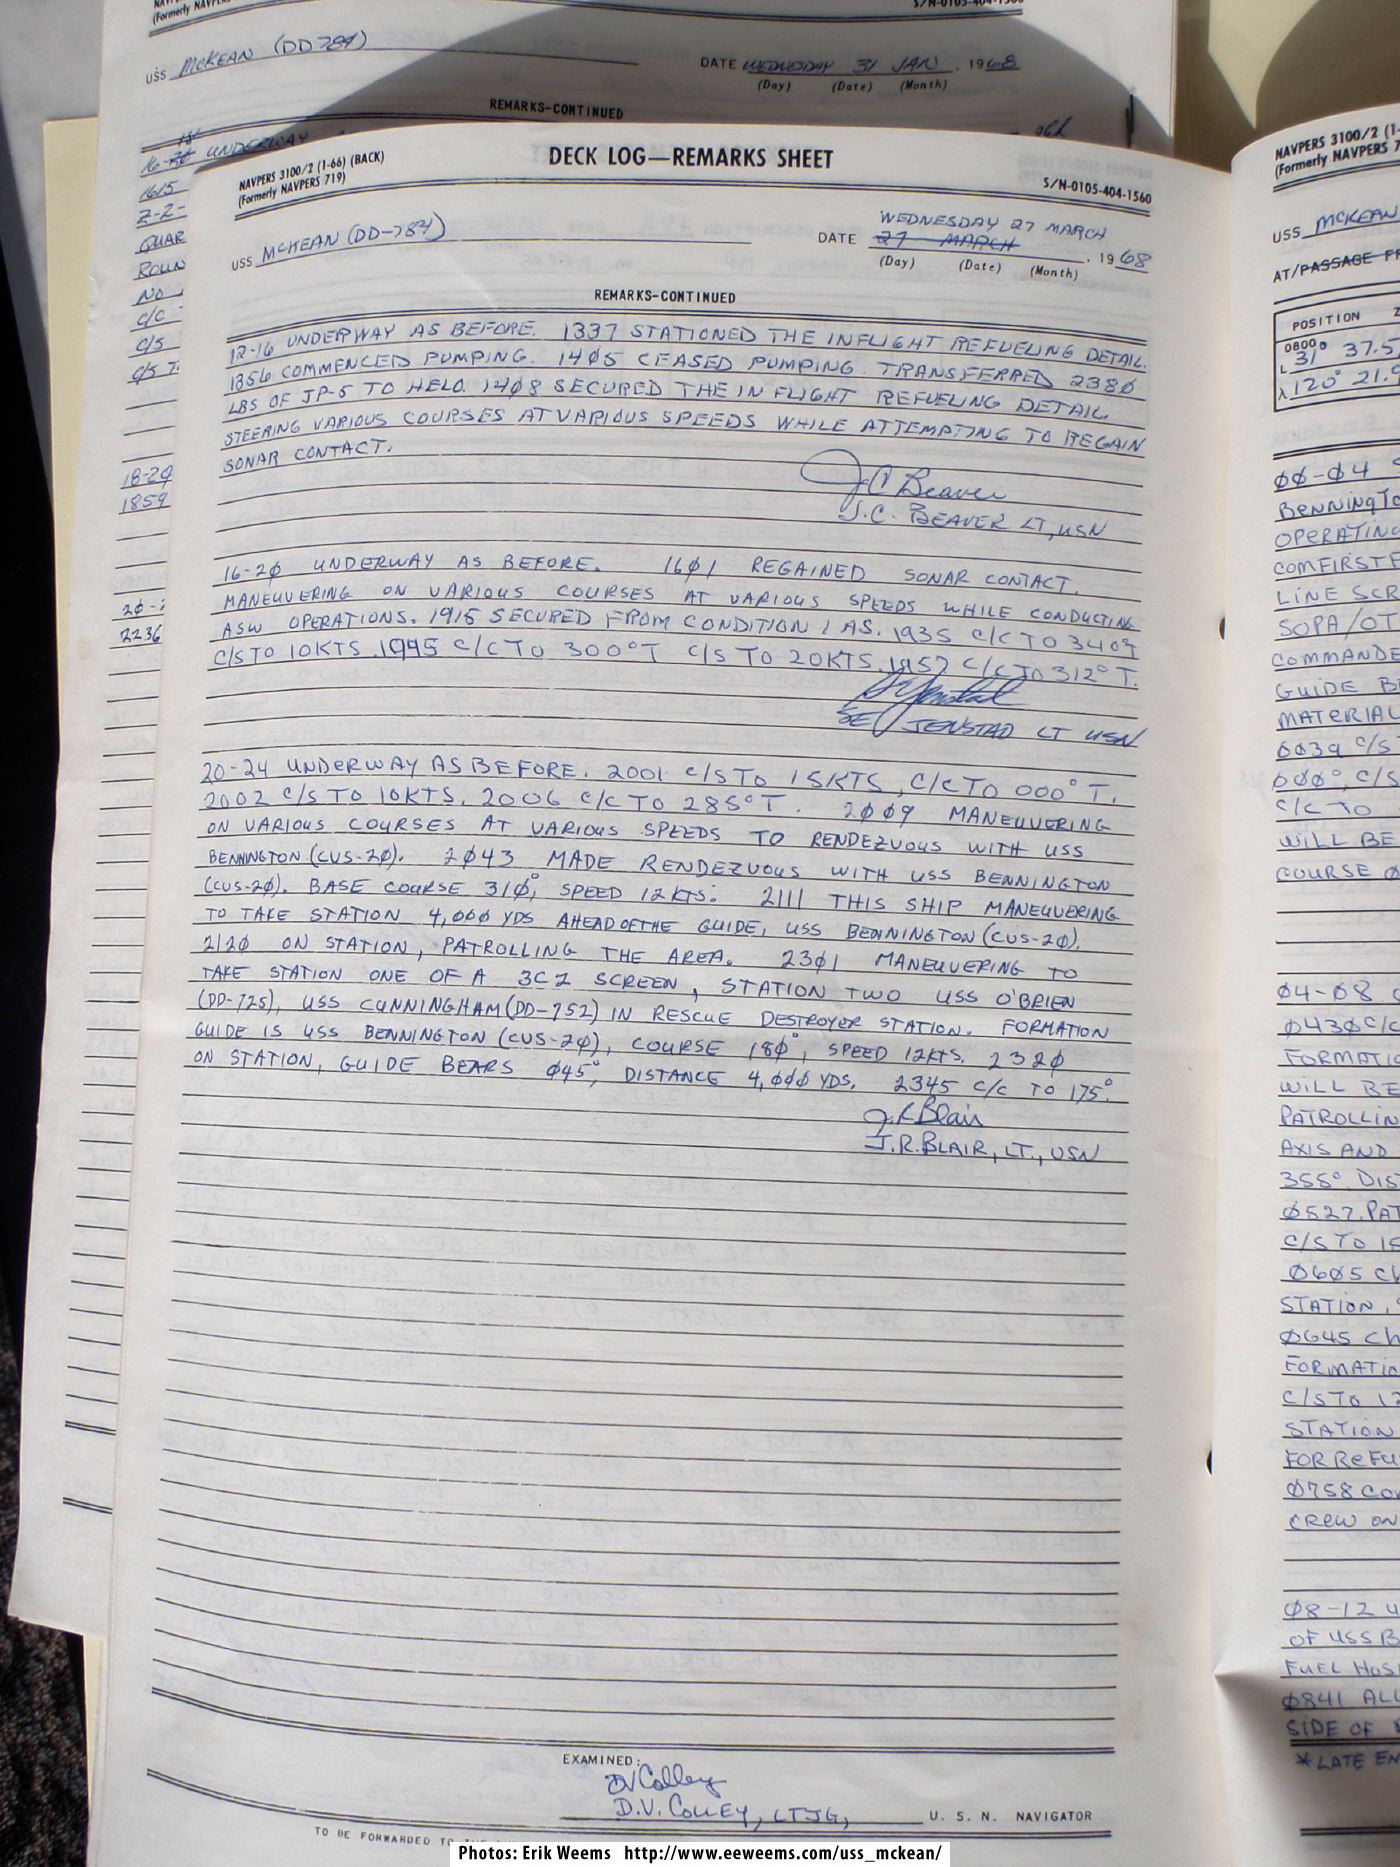 (Formerly NAVPERS
S/N-0105-404-1560
USS McKEAN (DD 784)
DATE WEDNESDAY 31 JAN, 1968
(Day) (Date) (Month)
REMARKS-CONTINUED
16-18 UNDERWAY
1615
2-2-
QUAR
ROUN
NO
C/C
C/S
C/S T.
18-20
1859
20-2
2236
NAVPERS 3100/2 (1-66) (BACK)
(Formerly NAVPERS 719)
DECK LOG—REMARKS SHEET
S/N-0105-404-1560
USS McKEAN (DD-784)
DATE WEDNESDAY 27 MARCH
27 MARCH, 1968
(Day) (Date) (Month)
REMARKS-CONTINUED
12-16 UNDERWAY AS BEFORE. 1337 STATIONED THE INFLIGHT REFUELING DETAIL.
1356 COMMENCED PUMPING. 14Ø5 CEASED PUMPING. TRANSFERRED 238Ø
LBS OF JP-5 TO HELO. 14Ø8 SECURED THE IN FLIGHT REFUELING DETAIL
STEERING VARIOUS COURSES AT VARIOUS SPEEDS WHILE ATTEMPTING TO REGAIN
SONAR CONTACT.
J C Beaver
J.C. BEAVER LT, USN
16-2Ø UNDERWAY AS BEFORE. 16Ø1 REGAINED SONAR CONTACT.
MANEUVERING ON VARIOUS COURSES AT VARIOUS SPEEDS WHILE CONDUCTING
ASW OPERATIONS. 1915 SECURED FROM CONDITION 1 AS. 1935 C/C TO 340°T
C/S TO 10KTS. 1945 C/C TO 300°T C/S TO 20KTS. 1957 C/C TO 312° T.
SE JENSTAD LT USN
20-24 UNDERWAY AS BEFORE. 2001 C/S TO 15KTS, C/C TO 000° T.
2002 C/S TO 10KTS. 2006 C/C TO 285°T. 2ØØ9 MANEUVERING
ON VARIOUS COURSES AT VARIOUS SPEEDS TO RENDEZVOUS WITH USS
BENNINGTON (CVS-2Ø). 2Ø43 MADE RENDEZVOUS WITH USS BENNINGTON
(CVS-2Ø). BASE COURSE 31Ø°, SPEED 12 KTS. 2111 THIS SHIP MANEUVERING
TO TAKE STATION 4,ØØØ YDS AHEAD OF THE GUIDE, USS BENNINGTON (CVS-2Ø).
212Ø ON STATION, PATROLLING THE AREA. 23Ø1 MANEUVERING TO
TAKE STATION ONE OF A 3CZ SCREEN, STATION TWO USS O'BRIEN
(DD-725), USS CUNNINGHAM (DD-752) IN RESCUE DESTROYER STATION. FORMATION
GUIDE IS USS BENNINGTON (CVS-2Ø), COURSE 18Ø°, SPEED 12KTS. 232Ø
ON STATION, GUIDE BEARS Ø45°, DISTANCE 4,ØØØ YDS. 2345 C/C TO 175°.
J.R Blair
J.R. BLAIR, LT., USN
EXAMINED:
DV Colley
D.V. COLLEY, LTJG, U. S. N. NAVIGATOR
TO BE FORWARDED
NAVPERS 3100/2 (1-
(Formerly NAVPERS 7
USS McKEAN
AT/PASSAGE FR
POSITION
0800
L 31° 37.5
λ 120° 21.9
ØØ-Ø4
BENNINGTO
OPERATING
COMFIRSTF
LINE SCR
SOPA/OT
COMMANDE
GUIDE B
MATERIAL
ØØ39 C/S
ØØØ°, C/S
C/C TO
WILL BE
COURSE Ø
Ø4-Ø8
Ø43Ø C/C
FORMATIO
WILL BE
PATROLLIN
AXIS AND
355° DIS
Ø527. PAT
C/S TO 15
Ø6Ø5 Ch
STATION,
Ø645 Ch
FORMATIO
C/S TO 12
STATION
FOR REFU
Ø758 CO
CREW ON
Ø8-12 U
OF USS B
FUEL HOS
Ø841 ALL
SIDE OF
*LATE EN
Photos: Erik Weems http://www.eeweems.com/uss_mckean/